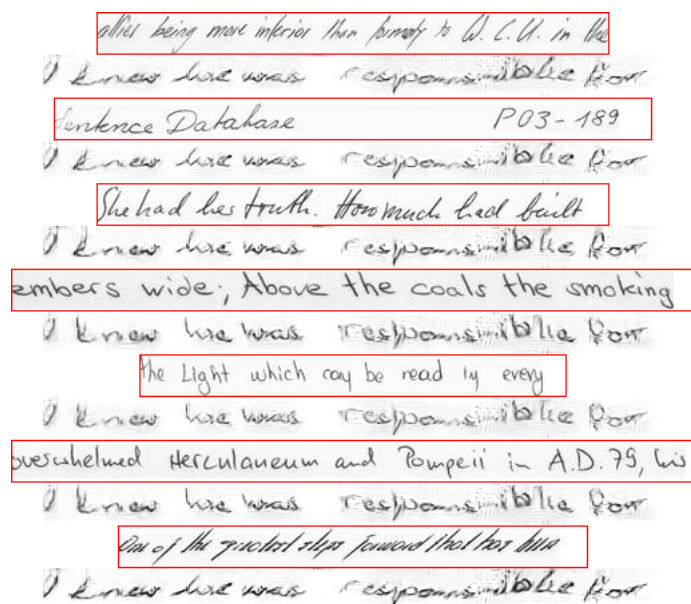 allies being more inferior than formerly to W.C.U. in the
I knew he was responsible for
Sentence Database P03-189
I knew he was responsible for
She had her truth. How much had built
I knew he was responsible for
embers wide; Above the coals the smoking
I knew he was responsible for
the Light which may be read in every
I knew he was responsible for
overwhelmed Herculaneum and Pompeii in A.D. 79, his
I knew he was responsible for
One of the greatest steps forward that has been
I knew he was responsible for